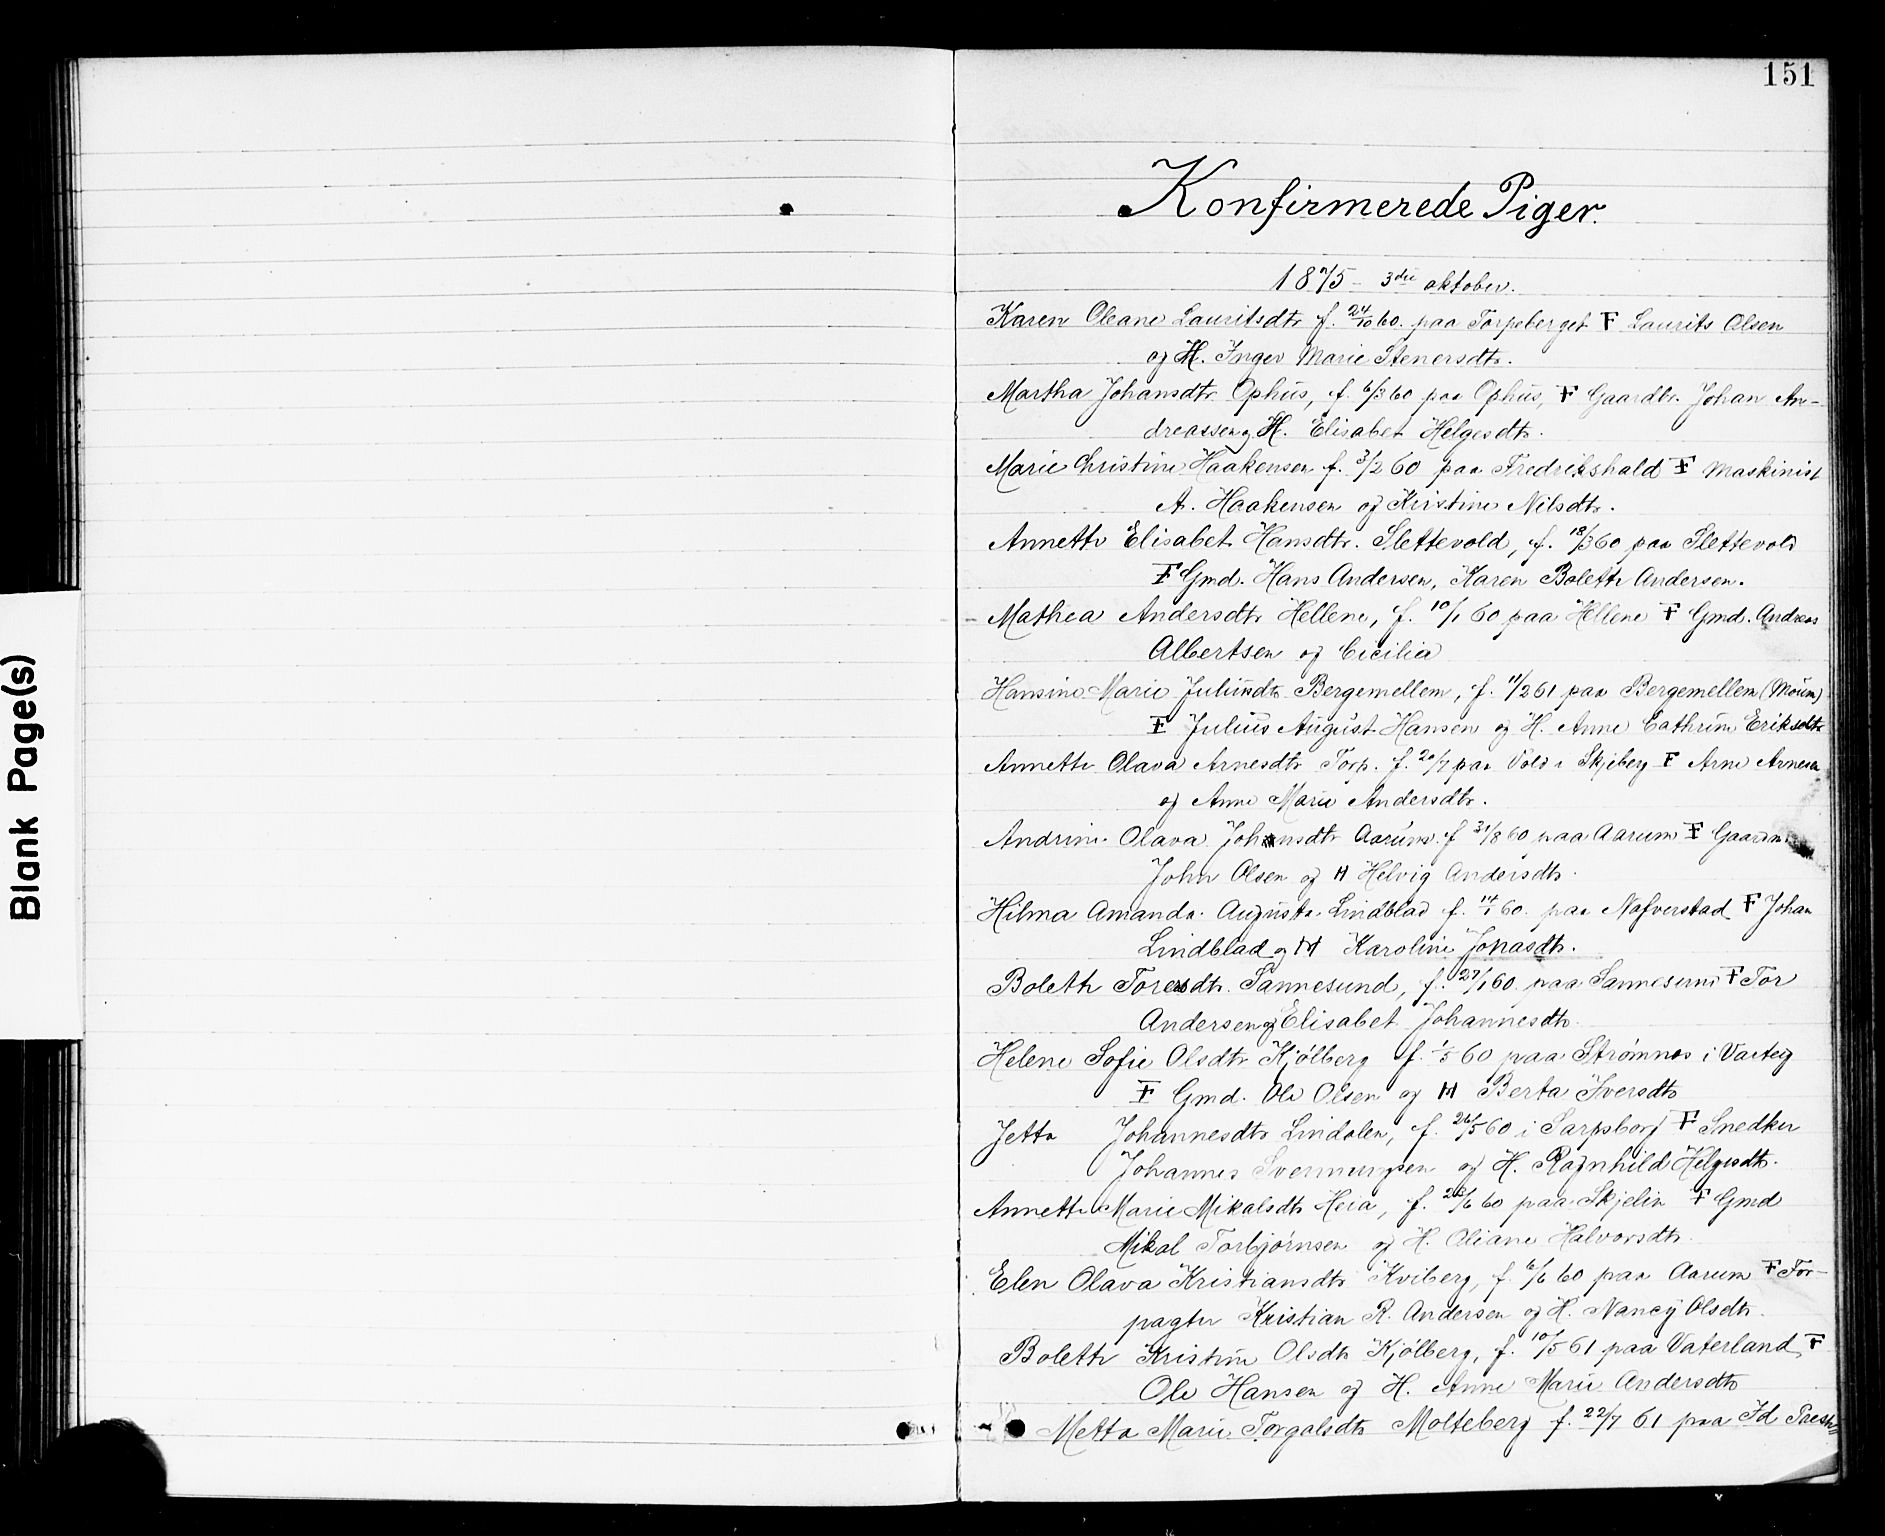 151
Konfirmerede Piger.
1875 - 3die oktober.
Karen Oleane Lauritsdtr f. 24/10 60. paa Torpeberget F Laurits Olsen
og H. Inger Marie Stenersdtr.
Martha Johansdtr. Ophus, f. 6/3 60 paa Ophus, F Gaardbr. Johan An-
dreassen og H. Elisabet Helgesdtr.
Marie Christine Haakensen f. 3/2 60 paa Fredrikshald F Maskinist
A. Haakensen og Kristine Nilsdtr.
Annette Elisabet Hansdtr. Slettevold, f. 18/3 60 paa Slettevold
F Gmd. Hans Andersen, Karen Bolette Andersen.
Mathea Andersdtr Hellene, f. 10/1 60 paa Hellene F Gmd. Andreas
Albertsen og Cicilia
Hansine Marie Juliusdtr Bergemellem, f. 11/2 61 paa Bergemellem (Moum)
F Julius August Hansen og H. Anne Cathrine Eriksdtr
Annette Olava Arnesdtr Torp. f. 20/7 paa Vold i Skjeberg F Arne Arnesen
og Anne Marie Andersdtr.
Andrine Olava Johansdtr Aarum. f 31/8 60 paa Aarum F
John Olsen og H Helvig Andersdtr.
Hilma Amanda Augusta Lindblad f. 14/1 60. paa Nafverstad F Johan
Lindblad og H Karoline Jonasdtr.
Bolette Toresdtr. Sannesund, f. 27/1 60. paa Sannesund F Tor
Andersen og Elisabet Johannesdtr.
Helene Sofie Olsdtr Kjølberg f. 1/5 60 paa Strømnes i Varteig
F Gmd. Ole Olsen og H Berta Iversdtr
Jetta Johannesdtr Lindalen, f. 26/5 60 i Sarpsborg F Snedker
Johannes Svennungsen og H. Ragnhild Helgesdtr.
Annette Marie Mikalsdtr Heia, f. 28/6 60 paa Skjelin F Gmd
Mikal Torbjørnsen og H. Oliane Halvorsdtr.
Elen Olava Kristiansdtr Kviberg, f. 6/6 60 paa Aarum F For-
pagter Kristian R. Andersen og H. Nancy Olsdtr.
Bolette Kristine Olsdtr Kjølberg, f. 10/5 61 paa Vaterland, F
Ole Hansen og H. Anne Marie Andersdtr
Metta Marie Torgalsdtr Molteberg f. 22/7 61 paa Id
Blank Page(s)